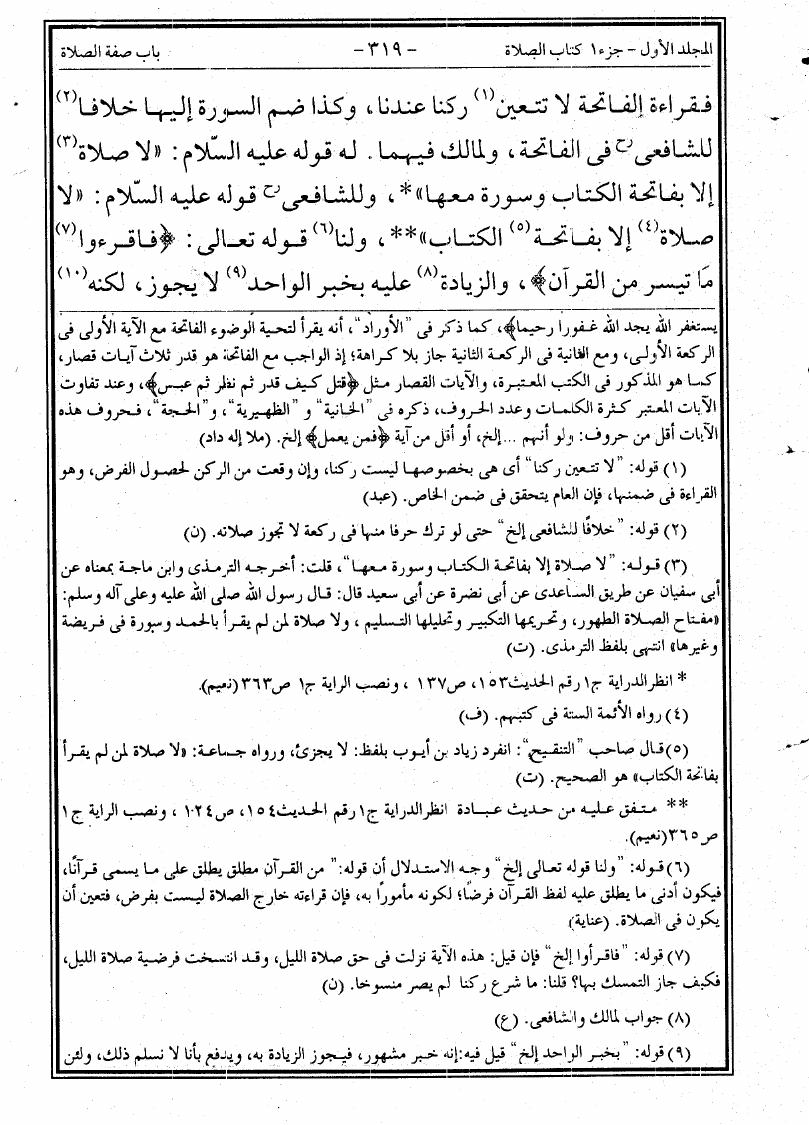 المجلد الأول – جزء١ كتاب الصلاة - ٣١٩ - باب صفة الصلاة
فقراءة الفاتحة لا تتعين(١) ركنا عندنا، وكذا ضم السورة إليها خلافا(٢)
للشافعى رح فى الفاتحة، ولمالك فيهما. له قوله عليه السّلام: «لا صلاة(٣)
إلا بفاتحة الكتاب وسورة معها»*، وللشافعى رح قوله عليه السّلام: «لا
صلاة(٤) إلا بفاتحة(٥) الكتاب»**، ولنا(٦) قوله تعالى: ﴿فاقرءوا(٧)
مَا تيسر من القرآن﴾، والزيادة(٨) عليه بخبر الواحد(٩) لا يجوز، لكنه(١٠)
يستغفر الله يجد الله غفورا رحيما﴾، كما ذكر فى "الأوراد"، أنه يقرأ لتحية الوضوء الفاتحة مع الآية الأولى فى
الركعة الأولى، ومع الثانية فى الركعة الثانية جاز بلا كراهة؛ إذ الواجب مع الفاتحة هو قدر ثلاث آيات قصار،
كما هو المذكور فى الكتب المعتبرة، والآيات القصار مثل ﴿قتل كيف قدر ثم نظر ثم عبس﴾، وعند تفاوت
الآيات المعتبر كثرة الكلمات وعدد الحروف، ذكره فى "الخانية" و "الظهيرية"، و"الحجة"، فحروف هذه
الآيات أقل من حروف: ولو أنهم ...إلخ، أو أقل من آية ﴿فمن يعمل﴾ إلخ. (ملا إله داد)
(١) قوله: "لا تتعين ركنا" أى هى بخصوصها ليست ركنا، وإن وقعت من الركن لحصول الفرض، وهو
القراءة فى ضمنها، فإن العام يتحقق فى ضمن الخاص. (عبد)
(٢) قوله: "خلافًا للشافعى إلخ" حتى لو ترك حرفا منها فى ركعة لا تجوز صلاته. (ن)
(٣) قوله: "لا صلاة إلا بفاتحة الكتاب وسورة معها"، قلت: أخرجه الترمذى وابن ماجة بمعناه عن
أبى سفيان عن طريق الساعدى عن أبى نضرة عن أبى سعيد قال: قال رسول الله صلى الله عليه وعلى آله وسلم:
«مفتاح الصلاة الطهور، وتحريمها التكبير وتحليلها التسليم، ولا صلاة لمن لم يقرأ بالحمد وسورة فى فريضة
وغيرها» انتهى بلفظ الترمذى. (ت)
* انظرالدراية ج١ رقم الحديث١٥٣، ص١٣٧ ، ونصب الراية ج١ ص٣٦٣(نعيم).
(٤) رواه الأئمة الستة فى كتبهم. (ف)
(٥) قال صاحب "التنقيح": انفرد زياد بن أيوب بلفظ: لا يجزئ، ورواه جماعة: «لا صلاة لمن لم يقرأ
بفاتحة الكتاب» هو الصحيح. (ت)
** متفق عليه من حديث عبادة انظرالدراية ج١ رقم الحديث١٥٤، ص١٠٢٤ ، ونصب الراية ج١
ص٣٦٥(نعيم).
(٦) قوله: "ولنا قوله تعالى إلخ" وجه الاستدلال أن قوله: "من القرآن مطلق يطلق على ما يسمى قرآنًا،
فيكون أدنى ما يطلق عليه لفظ القرآن فرضًا؛ لكونه مأمورًا به، فإن قراءته خارج الصلاة ليست بفرض، فتعين أن
يكون فى الصلاة. (عناية)
(٧) قوله: "فاقرأوا إلخ" فإن قيل: هذه الآية نزلت فى حق صلاة الليل، وقد انتسخت فرضية صلاة الليل،
فكيف جاز التمسك بها؟ قلنا: ما شرع ركنا لم يصر منسوخا. (ن)
(٨) جواب لمالك والشافعى. (ع)
(٩) قوله: "بخبر الواحد إلخ" قيل فيه:إنه خبر مشهور، فيجوز الزيادة به، ويدفع بأنا لا نسلم ذلك، ولئن